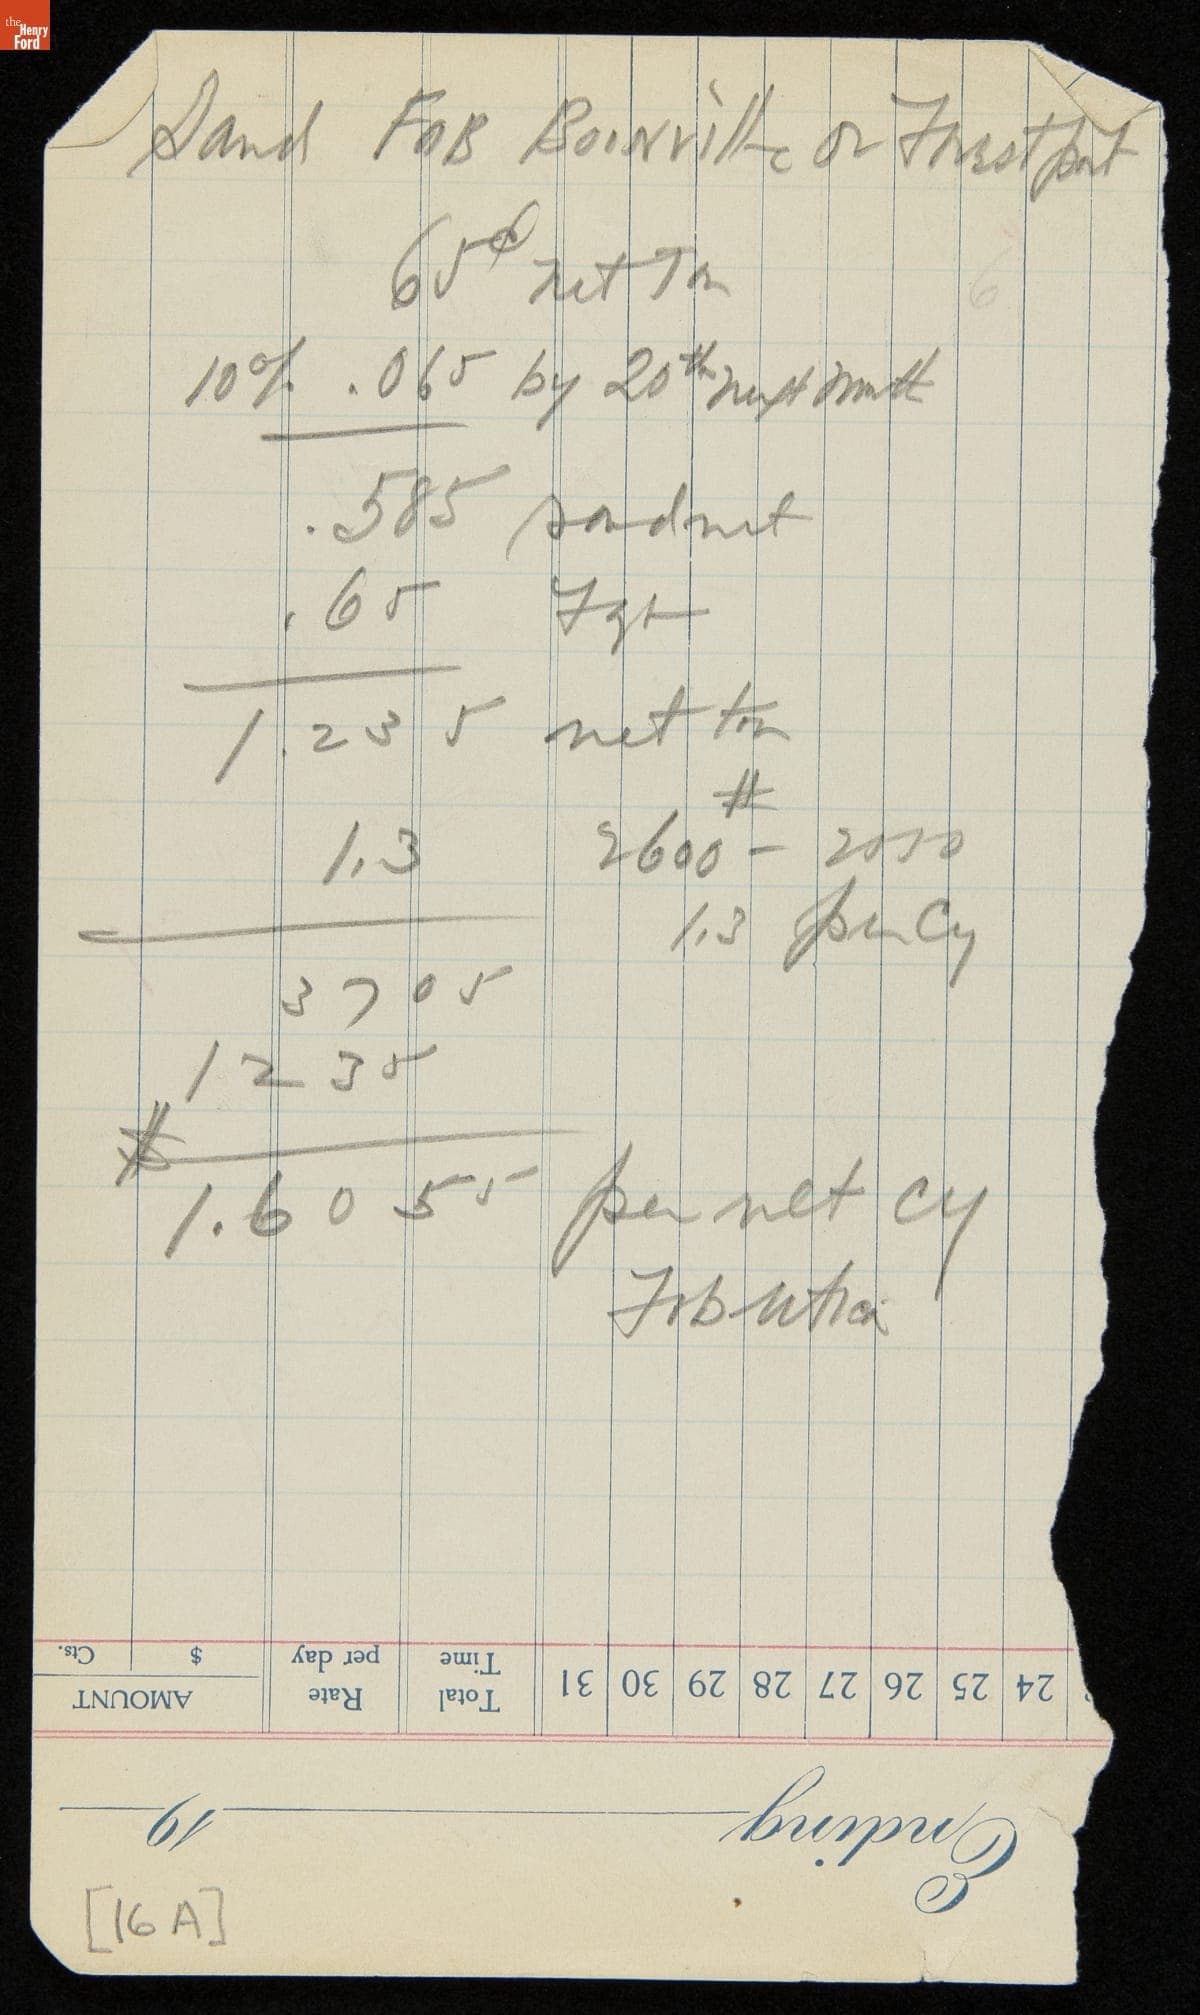 the Henry Ford
Sand FOB Boonville or Forestport
65¢ net Ton
10% .065 by 20th next month
.585 sand net
.65 Fgt
1.235 net ton
#
1.3 2600 - 2000
1.3 per Cy
3705
1235
$
1.6055 per net cy
Fob Utica
Cts. $ per day Rate Time Total 31 30 29 28 27 26 25 24
AMOUNT
19 Ending
[16 A]